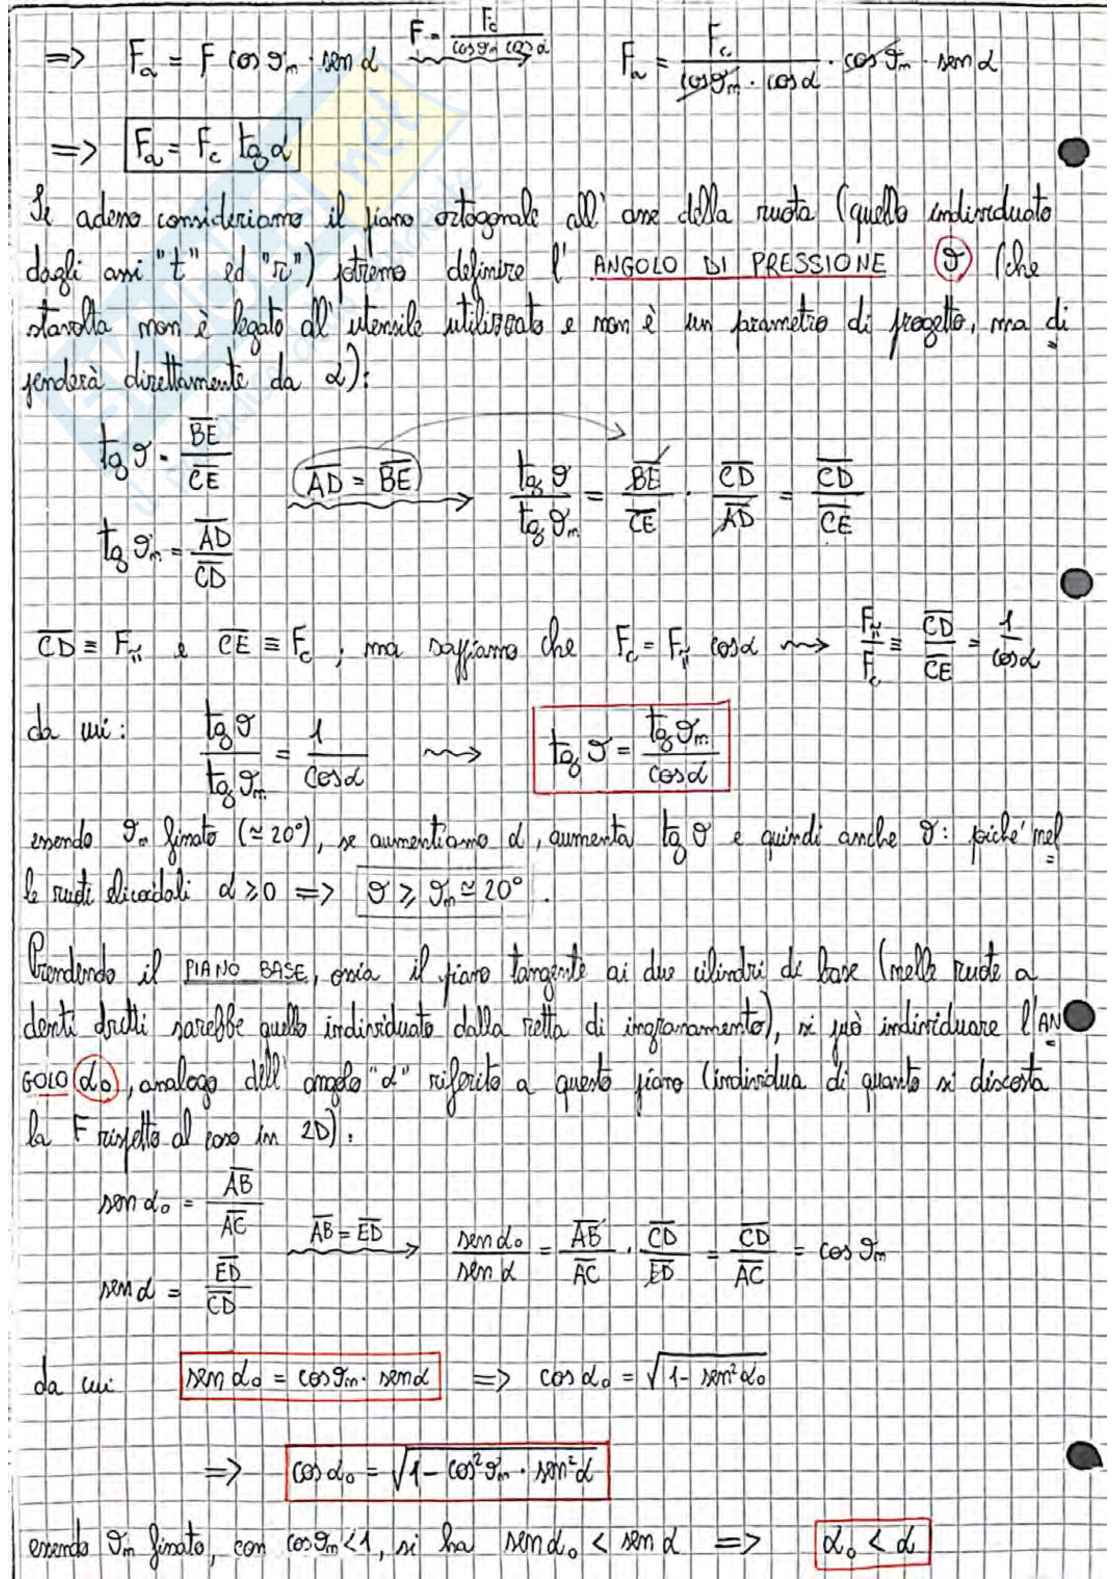 => Fa = F cos ϑn · sen α F = Fc / (cos ϑn cos α) Fa = Fc / (cos ϑn · cos α) · cos ϑn · sen α
=> Fa = Fc tg α
Se adesso consideriamo il piano ortogonale all'asse della ruota (quello individuato
dagli assi "t" ed "r") potremo definire l'ANGOLO DI PRESSIONE ϑ (che
stavolta non è legato all'utensile utilizzato e non è un parametro di progetto, ma di
penderà direttamente da α):
tg ϑ = BE / CE
AD = BE tg ϑ / tg ϑn = BE / CE · CD / AD = CD / CE
tg ϑn = AD / CD
CD ≡ F e CE ≡ Fc ; ma sappiamo che Fc = F cos α ⇝ F / Fc ≡ CD / CE = 1 / cos α
da cui: tg ϑ / tg ϑn = 1 / cos α ⇝ tg ϑ = tg ϑn / cos α
essendo ϑn fissato (≃ 20°), se aumentiamo α, aumenta tg ϑ e quindi anche ϑ: poiché nel
le ruote elicoidali α ≥ 0 => ϑ ≥ ϑn ≃ 20° .
Prendendo il PIANO BASE, ossia il piano tangente ai due cilindri di base (nelle ruote a
denti dritti sarebbe quello individuato dalla retta di ingranamento), si può individuare l'AN
GOLO α0, analogo dell'angolo "α" riferito a questo piano (individua di quanto si discosta
la F rispetto al caso in 2D):
sen α0 = AB / AC
AB = ED sen α0 / sen α = AB / AC · CD / ED = CD / AC = cos ϑn
sen α = ED / CD
da cui sen α0 = cos ϑn · sen α => cos α0 = √(1 - sen² α0)
=> cos α0 = √(1 - cos² ϑn · sen² α)
essendo ϑn fissato, con cos ϑn < 1, si ha sen α0 < sen α => α0 < α